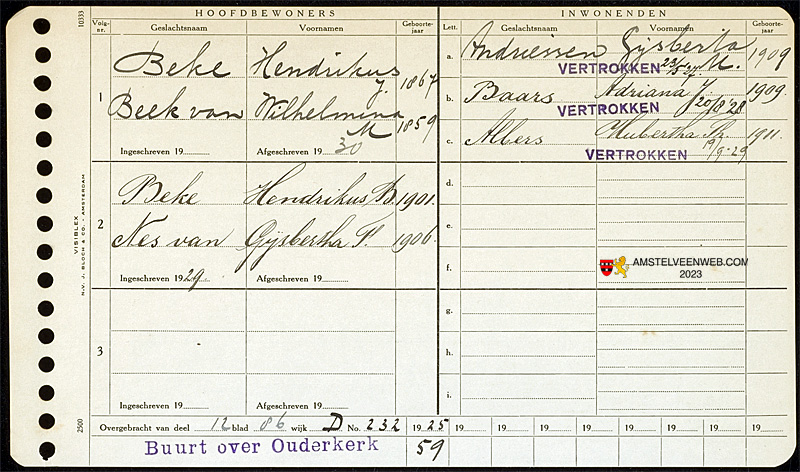 HOOFDBEWONERS
INWONENDEN
Volg-nr. Geslachtsnaam Voornamen Geboorte-jaar
Lett. Geslachtsnaam Voornamen Geboorte-jaar
10333
1
Beke Hendrikus J. 1867
Beek van Wilhelmina M 1859
Ingeschreven 19 Afgeschreven 19 30
2
Beke Hendrikus B. 1901.
Nes van Gijsbertha P. 1906.
Ingeschreven 1929 Afgeschreven 19
3
Ingeschreven 19 Afgeschreven 19
a. Andriessen Gijsberta M. 1909
VERTROKKEN 23/5 27
b. Baars Adriana J. 1909.
VERTROKKEN 20/8 28
c. Albers Hubertha 1901.
VERTROKKEN 19/9-29
d.
e.
f.
g.
h.
i.
AMSTELVEENWEB.COM
2023
VISIBLEX
N.V. J. BLOCH & CO. AMSTERDAM
2500
Overgebracht van deel 12 blad 86 wijk D No. 232 1925 19 19 19 19 19 19 19 19
Buurt over Ouderkerk 59